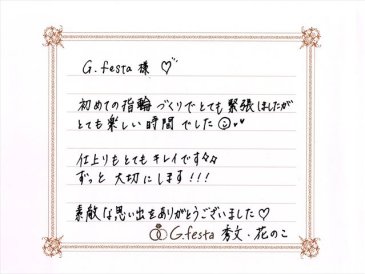 G.festa 様 ♡
初めての指輪づくりでとても緊張しましたが
とても楽しい時間でした☺♥♥
仕上りもとてもキレイです々々
ずっと大切にします!!!
素敵な思い出をありがとうございました♡
G.festa 秀文・花のこ